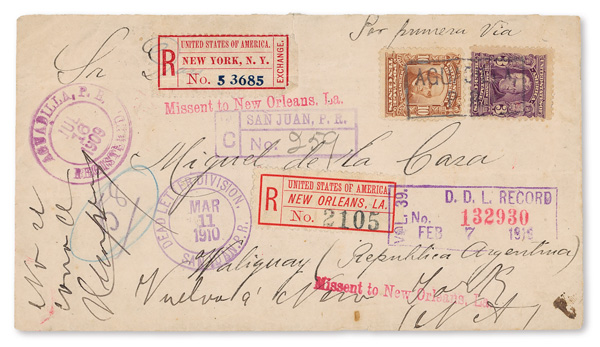 Por primera Via
Sr
UNITED STATES OF AMERICA.
R NEW YORK, N. Y.
No. 53685
EXCHANGE.
Missent to New Orleans, La.
AGUADILLA, P. R.
JUL
1909
SAN JUAN, P. R.
C No. 259
Miguel de la Casa
UNITED STATES OF AMERICA
R NEW ORLEANS, LA.
No. 2105
VOL. 39.
D. D. L. RECORD
No. 132930
FEB 7
DEAD LETTER DIVISION,
MAR
11
1910
No se
conoce
Maliguay (Republica Argentina)
Missent to New Orleans, La.
Vuelva á New York